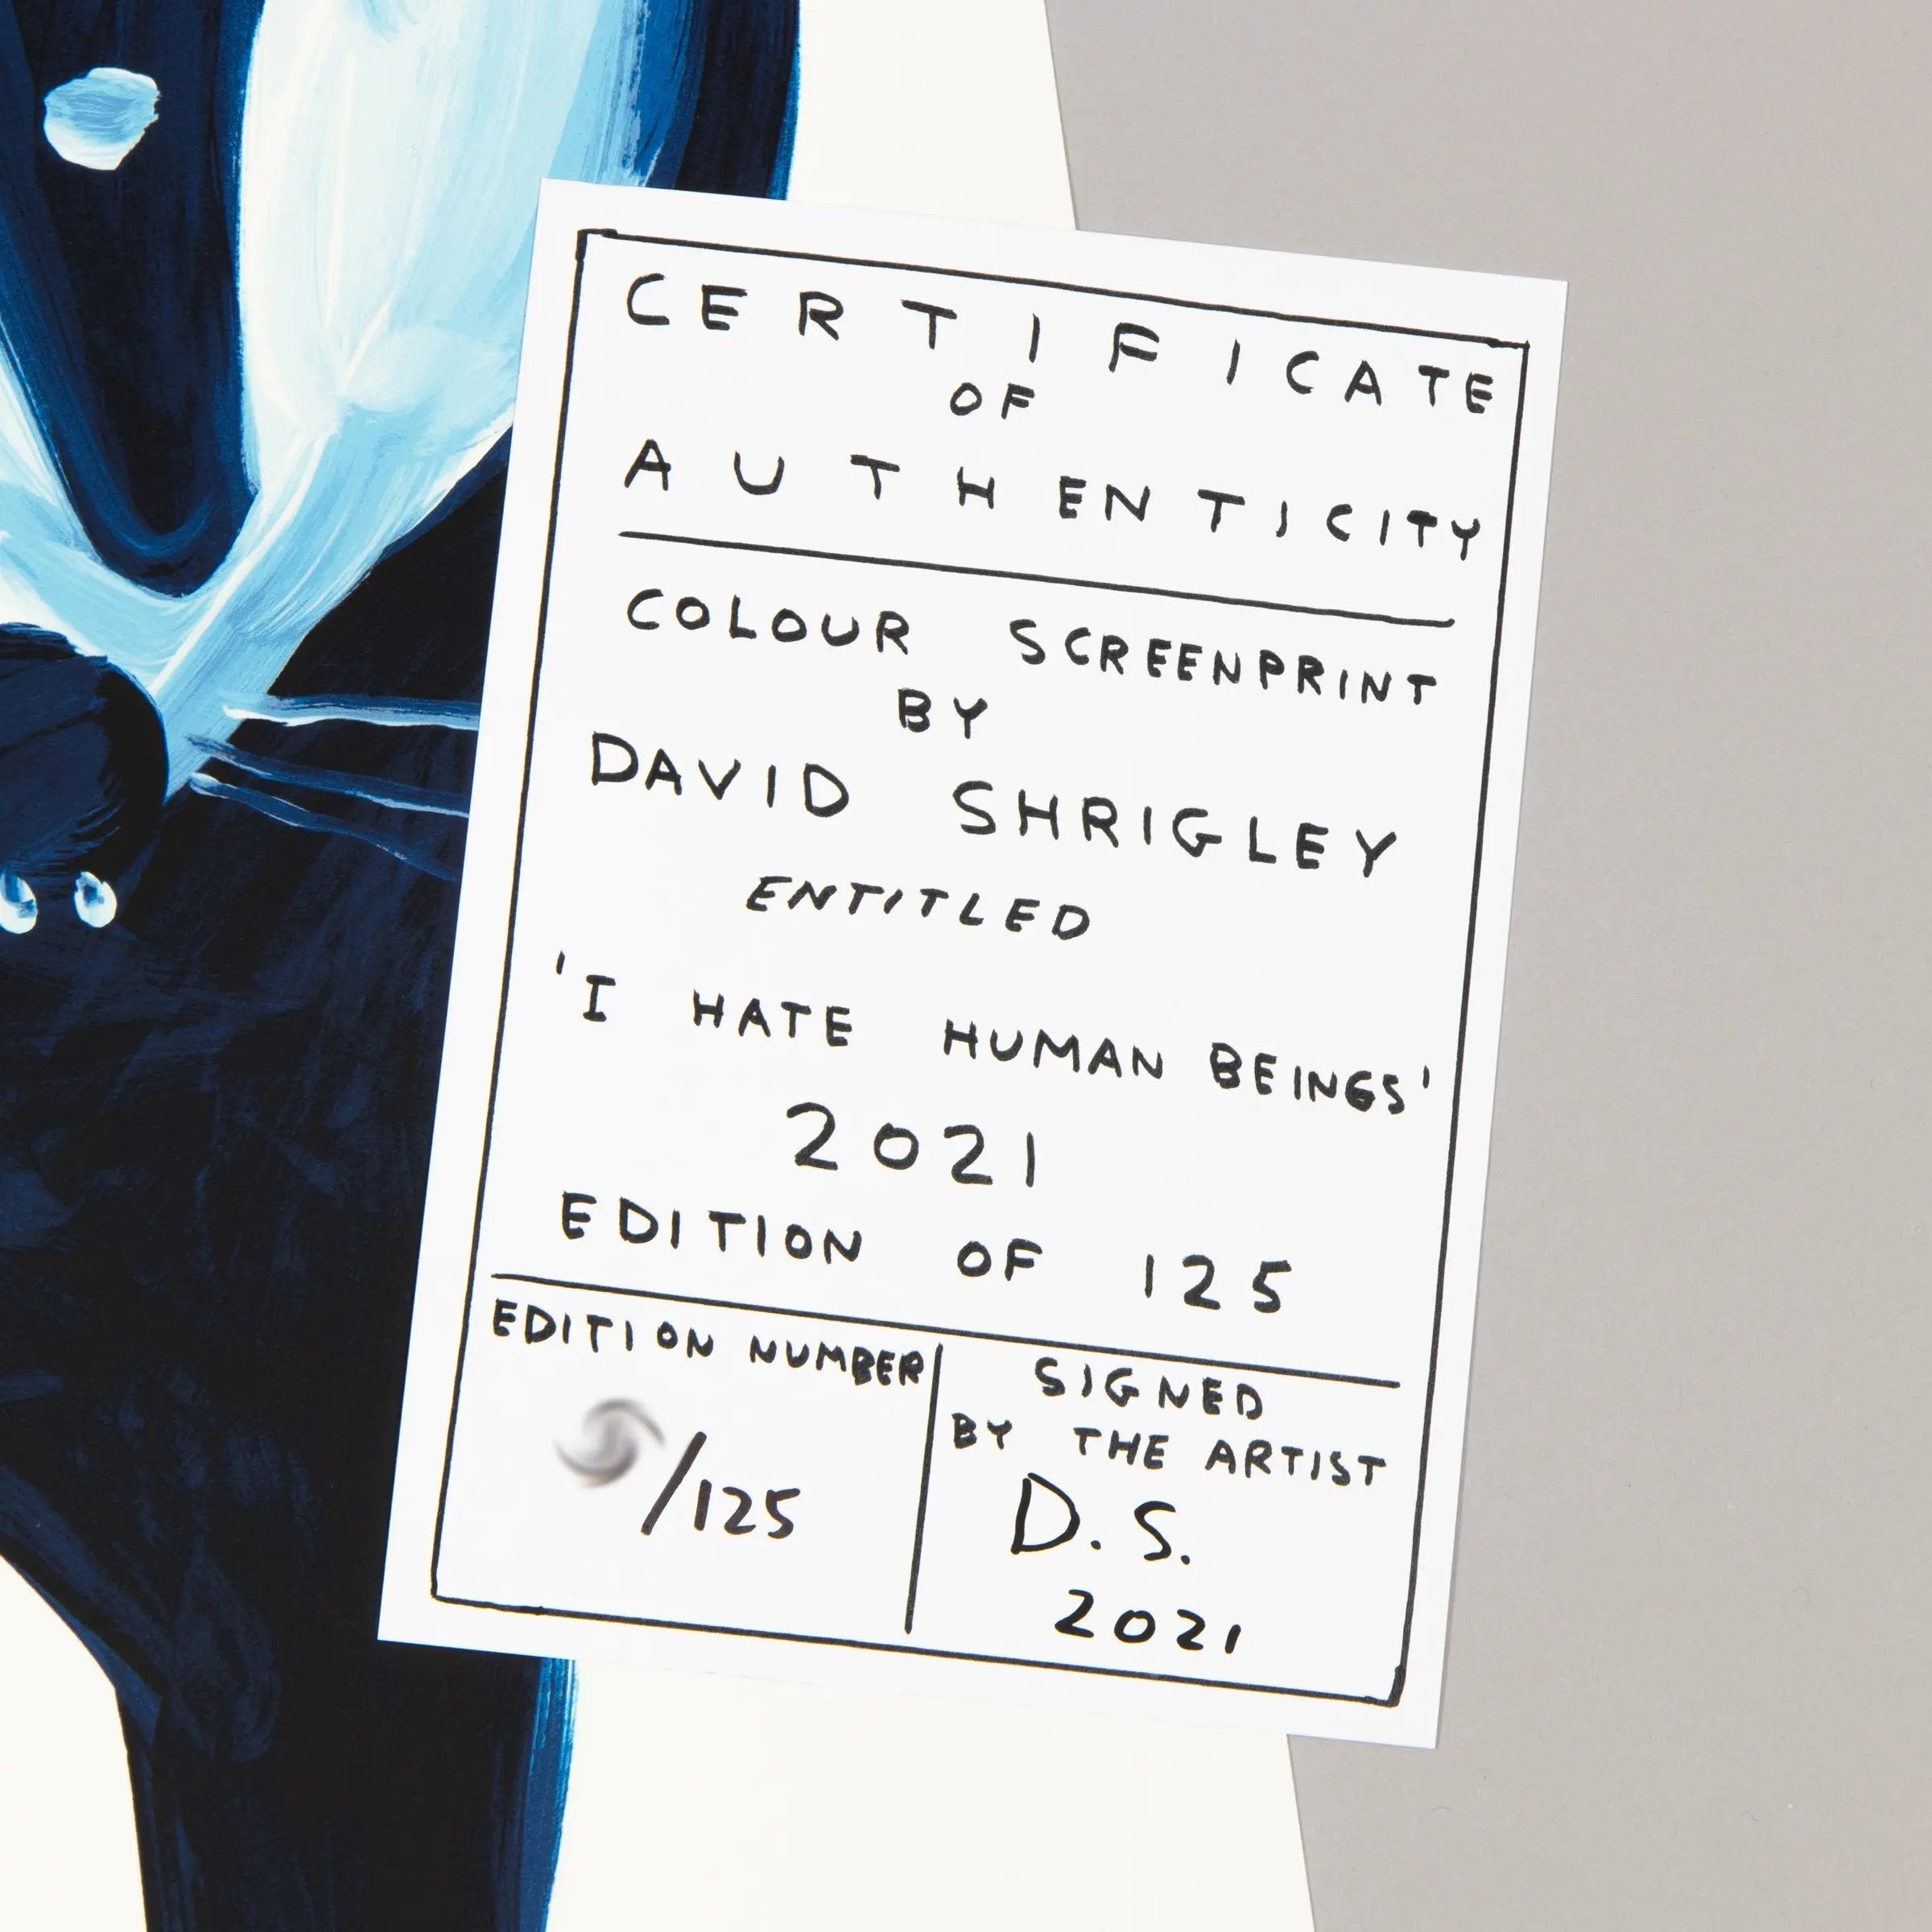 CERTIFICATE
OF
AUTHENTICITY
COLOUR SCREENPRINT
BY
DAVID SHRIGLEY
ENTITLED
'I HATE HUMAN BEINGS'
2021
EDITION OF 125
EDITION NUMBER
/125
SIGNED
BY THE ARTIST
D.S.
2021